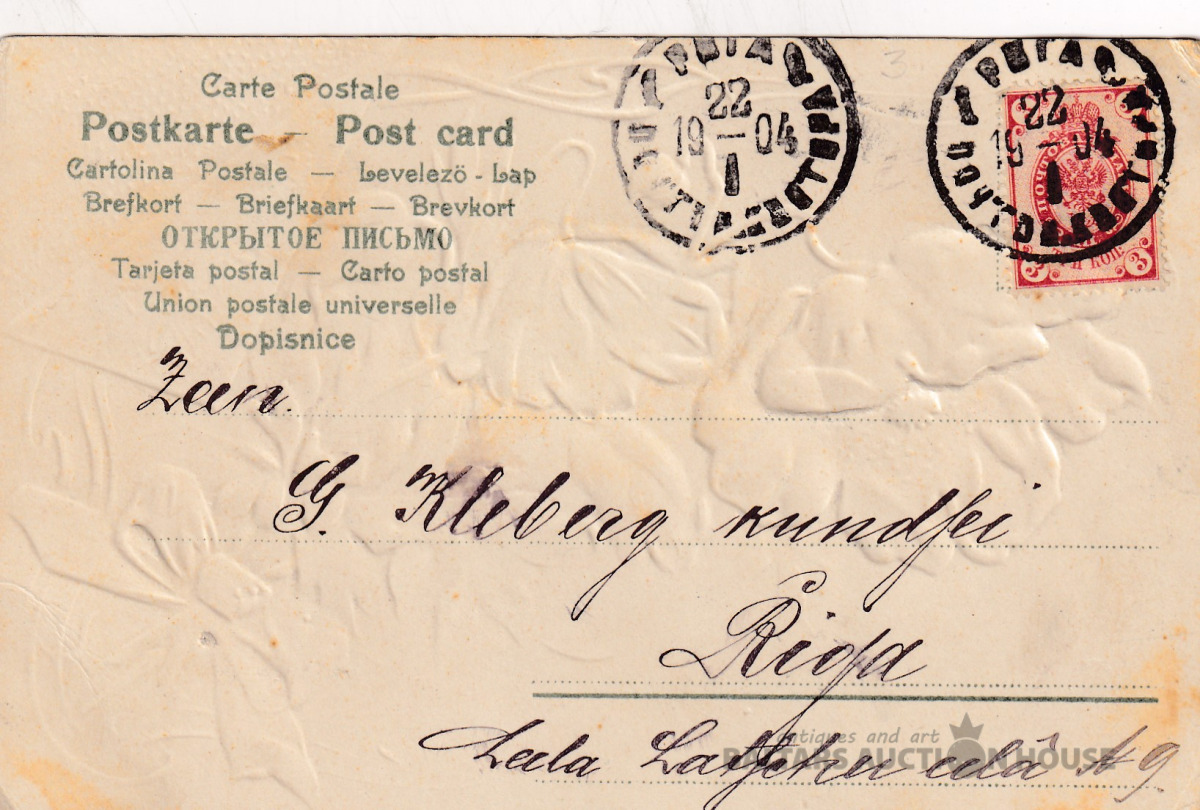 Carte Postale
Postkarte — Post card
Cartolina Postale — Levelezö-Lap
Brefkort — Briefkaart — Brevkort
ОТКРЫТОЕ ПИСЬМО
Tarjeta postal — Carto postal
Union postale universelle
Dopisnice
РИГА
22
19 — 04
I
РИГА
22
19 — 04
I
3
3 3
Zen.
G. Kleberg kundsei
Rigа
Leela
edâ № 9.
antiques and art
BALTARS AUCTION HOUSE